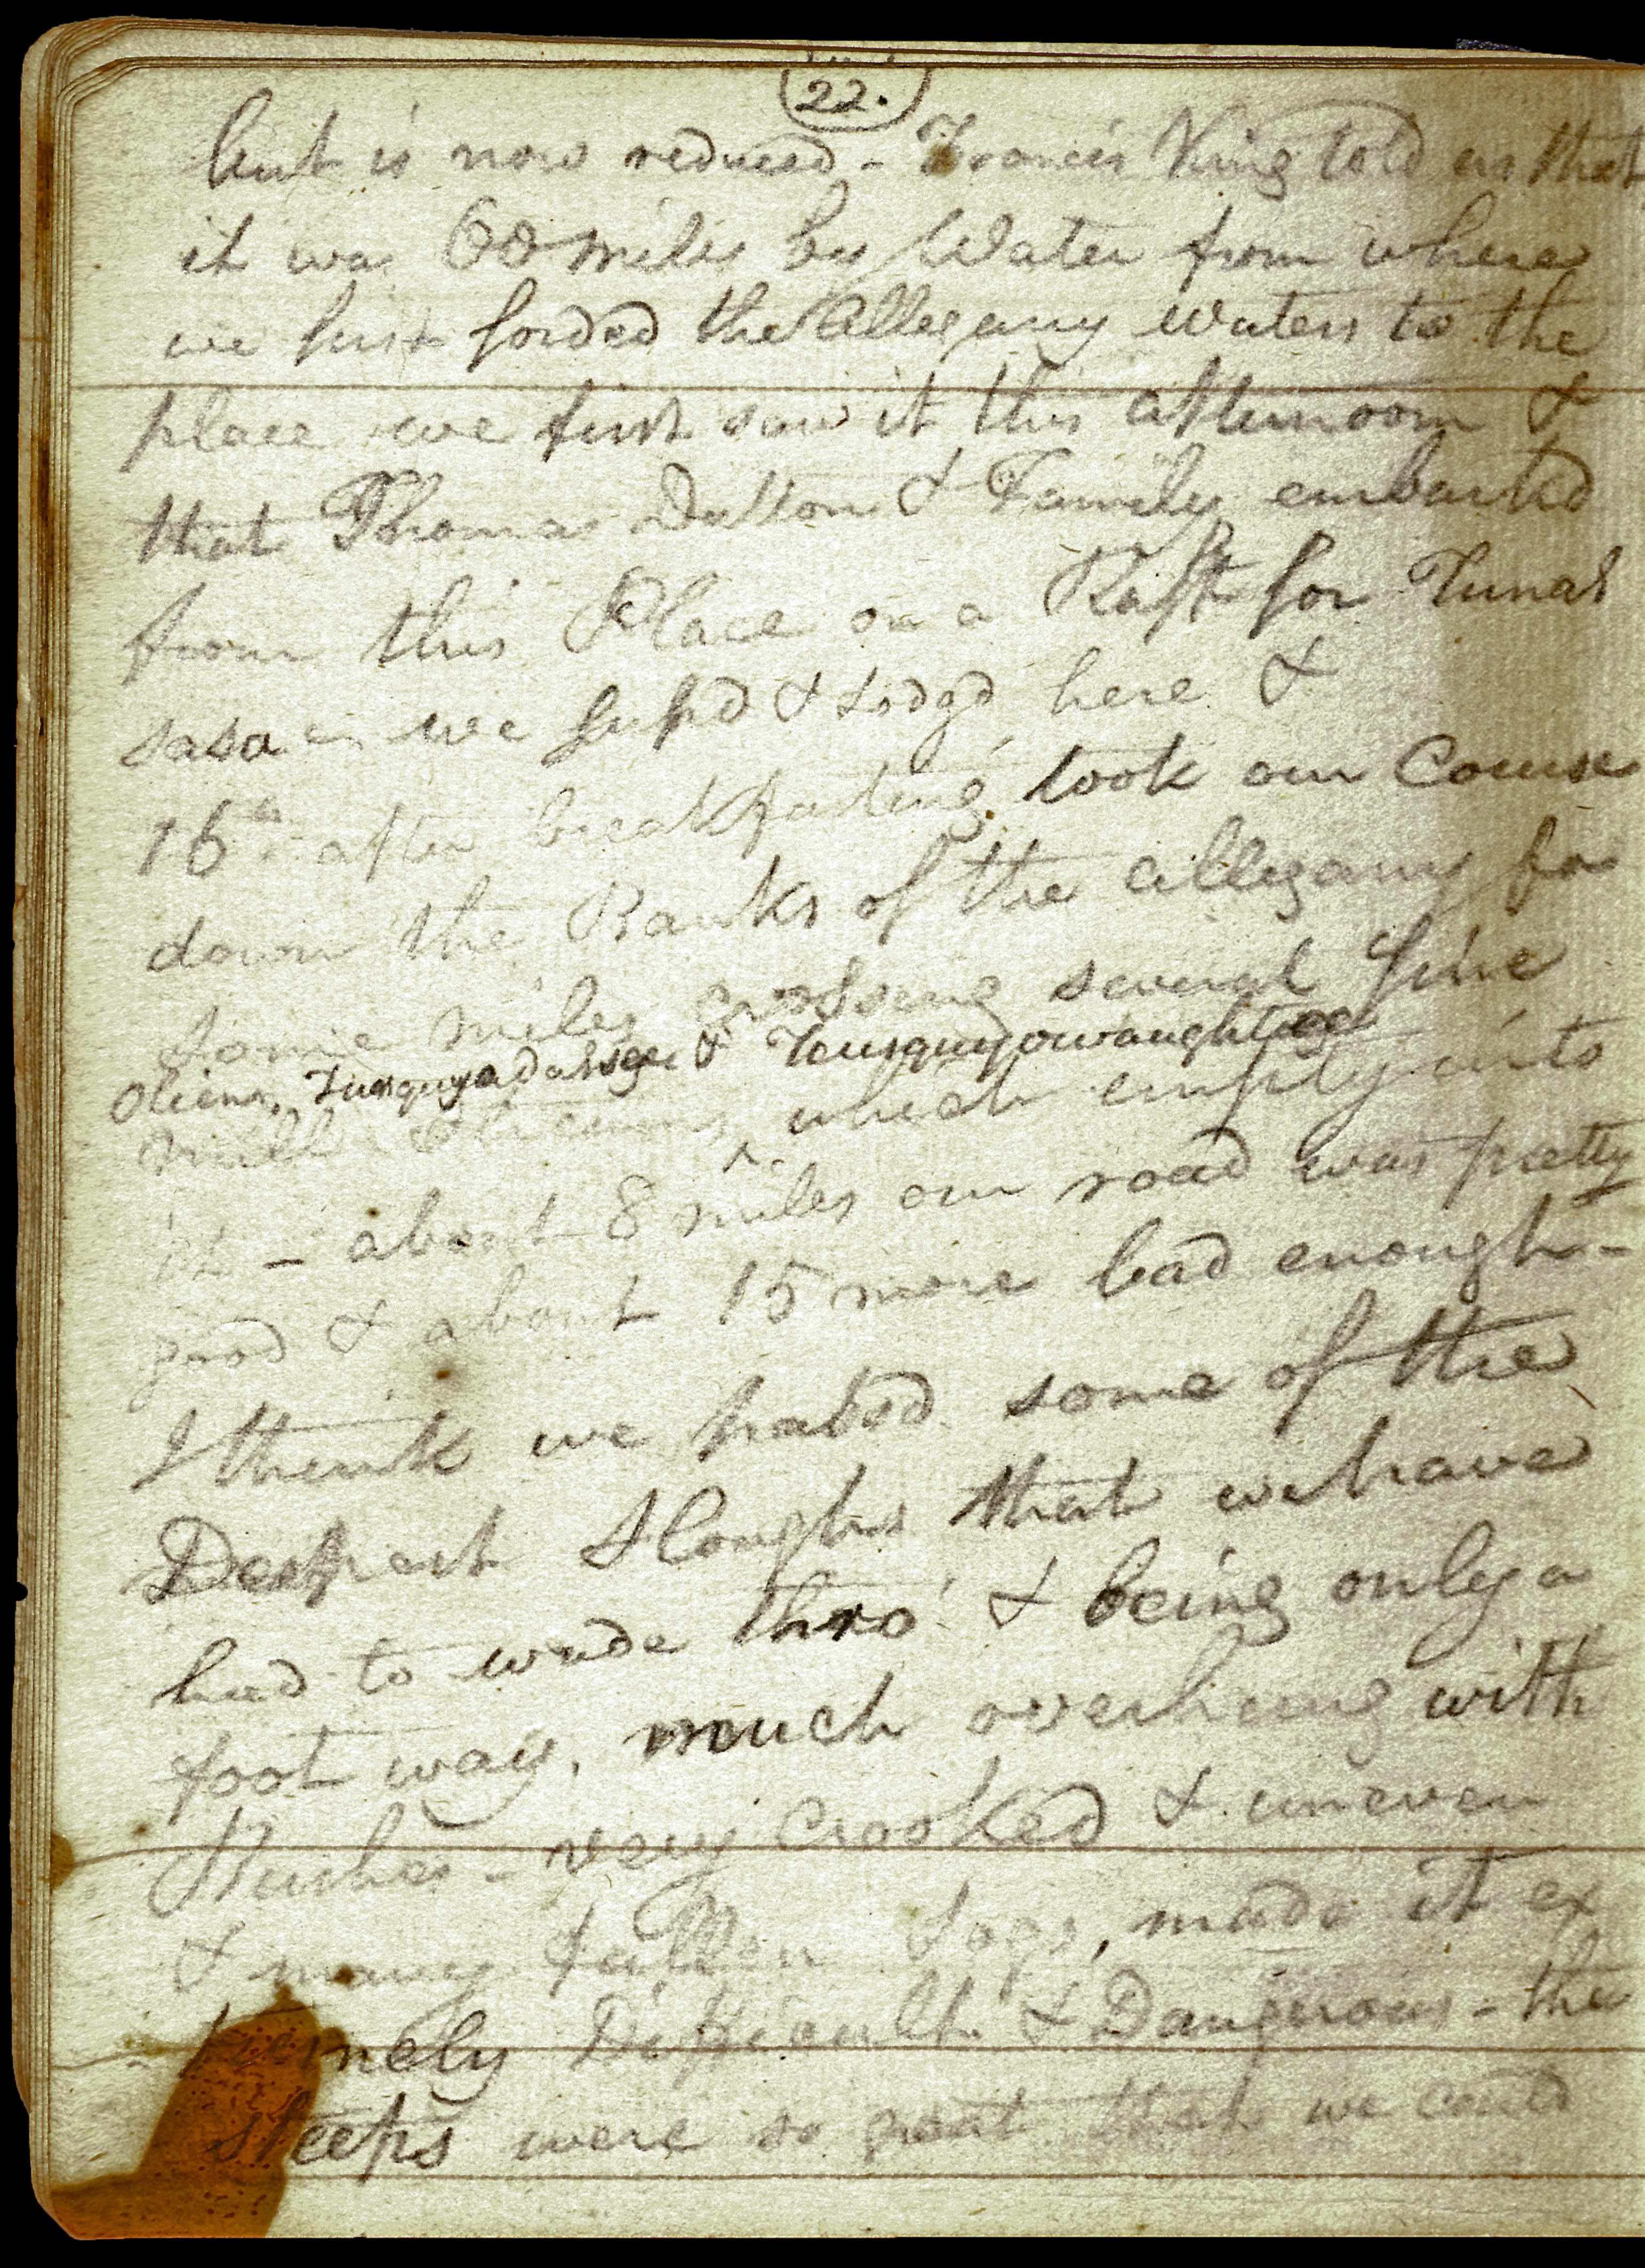 22.
but is now reduced - Francis King told us that
it was 60 miles by Water from where
we first forded the Allegany waters to the
place we first saw it this afternoon &
that Thomas Dutton & Family embarked
from this Place on a Raft for Tunas
sasa - we sup'd & Lodg'd here &
16th - after breakfasting took our Course
down the Banks of the Allegany for
some miles crossing several fine
Oliena, Tusquyadahsgee & Teusquyowaughtegee
mill Streams ^ which empty into
it - about 8 miles our road was pretty
good & about 15 more bad enough -
I think we pass'd some of the
Deepest Sloughs that we have
had to wade thro' & being only a
foot way, much overhung with
Bushes - very Crooked & uneven
& many fallen Logs, made it ex
tremely Difficult & Dangerous - the
steeps were so great that we could